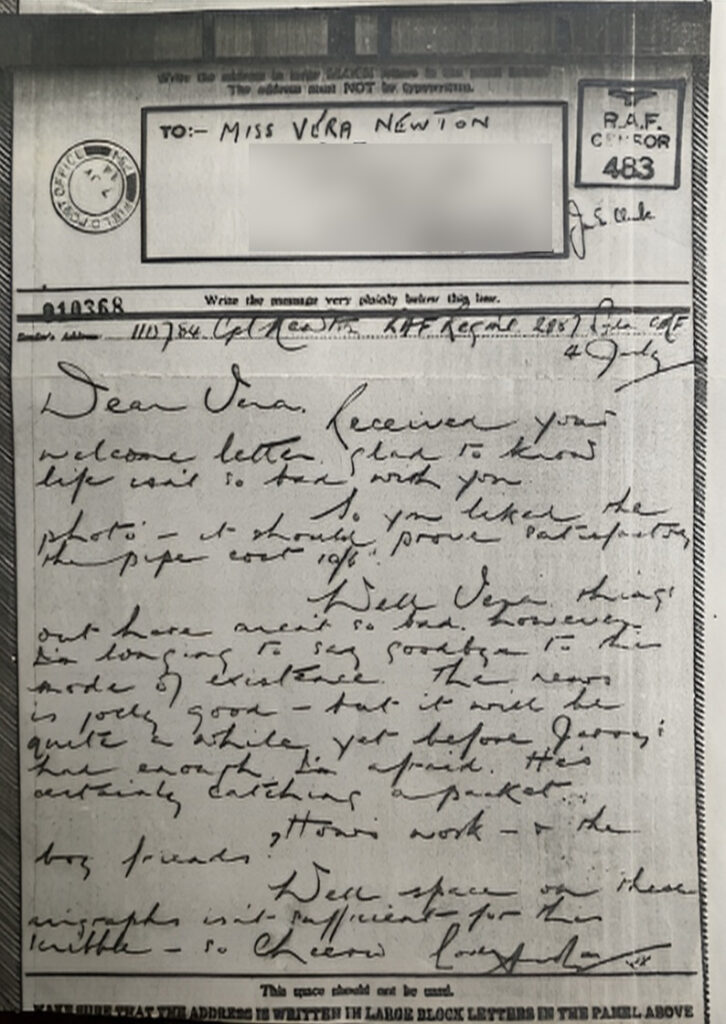 Write the address in large BLOCK letters in the panel below.
The address must NOT be typewritten.
TO:- MISS VERA NEWTON
FIELD POST OFFICE
R.A.F.
CENSOR
483
010368
Write the message very plainly below this line.
Sender's Address 1115784 Cpl Newton RAF Reg CMF
4 July
Dear Vera. Received your
welcome letter. Glad to know
life isn't so bad with you
So you liked the
photo - it should prove satisfactory
the pipe cost 10/6
Well Vera things
out here aren't so bad. however
I'm longing to say goodbye to this
mode of existence. The news
is jolly good - but it will be
quite a while yet before Jerry's
had enough I'm afraid. He's
certainly catching a packet.
How's work - & the
boy friends?
Well space on these
airgraphs isn't sufficient for this
scribble - so Cheerio
This space should not be used.
MAKE SURE THAT THE ADDRESS IS WRITTEN IN LARGE BLOCK LETTERS IN THE PANEL ABOVE